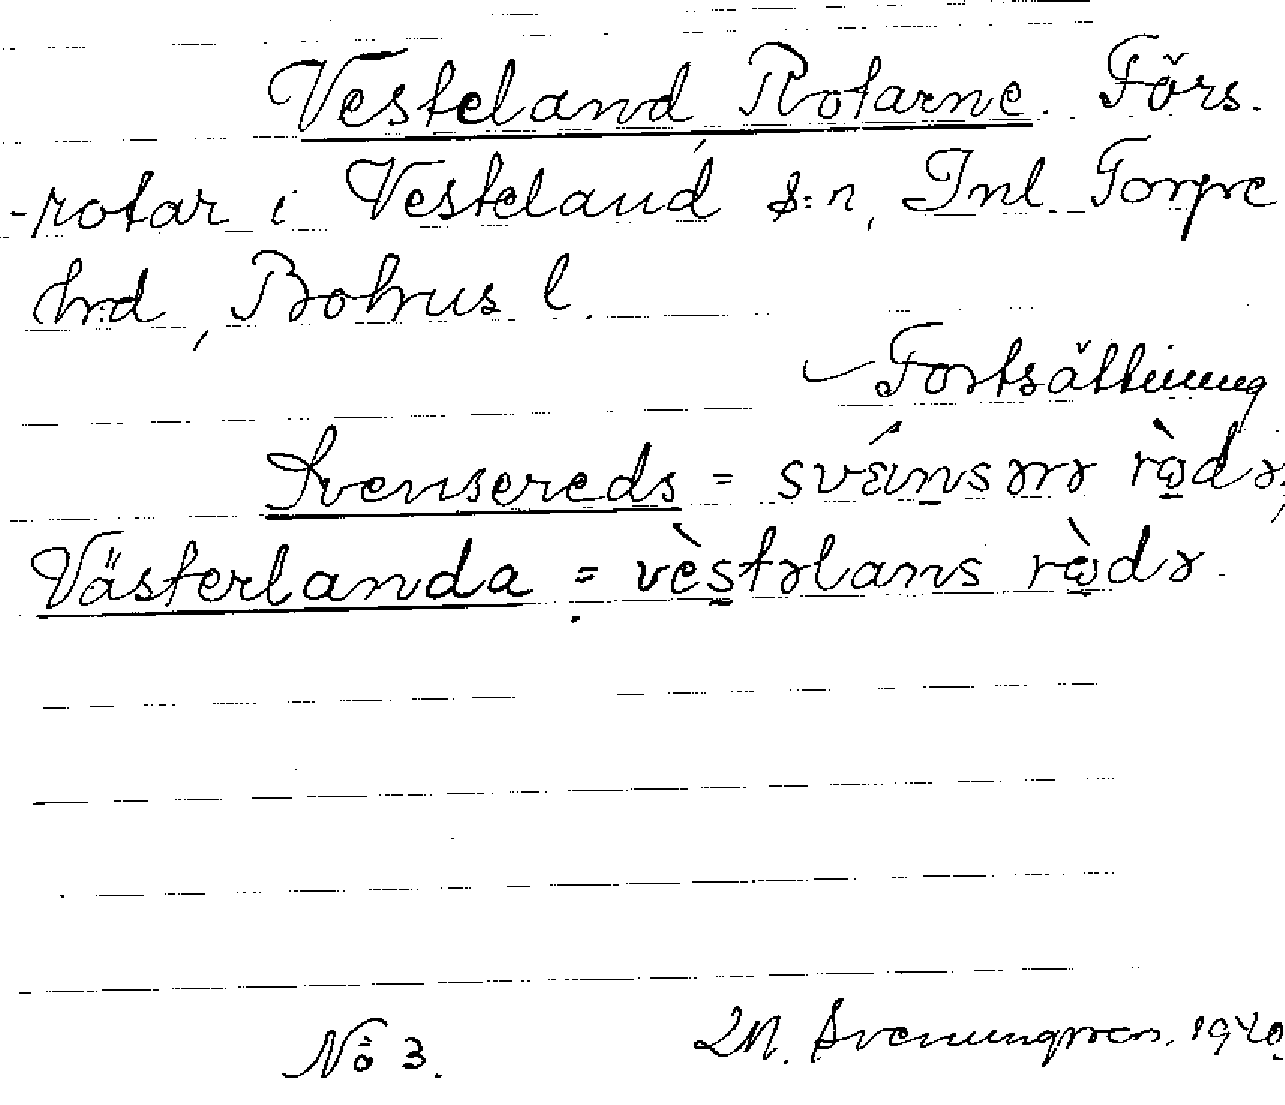 Vesteland, Rotarne. Förs.
-rotar i Vesteland s:n, Inl. Torpe
hrd, Bohus l.
Fortsättning
Svensereds = svɛ́insɤrɤ rò̤dɤ;
Västerlanda = vès̤tɤlans rò̤dɤ.
No 3. Svenungsson. 1920.